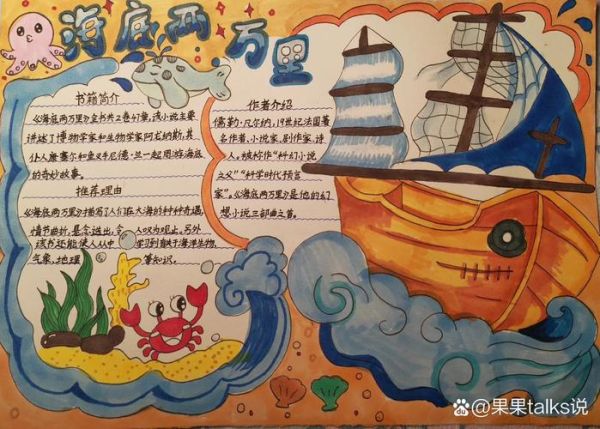 海底两万里
书籍简介
《海底两万里》全书共2卷47章,浅小说主要
讲述了博物学家和生物学家阿龙纳斯,其
仆人康塞尔和鱼叉手尼德·兰一起周游海底
的奇妙故事。
推荐理由
《海底两万里》描写了人们在大海的种种奇遇,
情节曲折,悬念迭出,令人叹为观止,另外
该书还能使人从中学习到有关于海洋生物,
气象,地理等知识。
作者介绍
儒勒·凡尔纳,19世纪法国著
名作者,小说家,剧作家,诗
人,被称作“科幻小说
之父”“科学时代预言
家”。《海底两万里》是他的幻
想小说三部曲之首。
@果果talks说